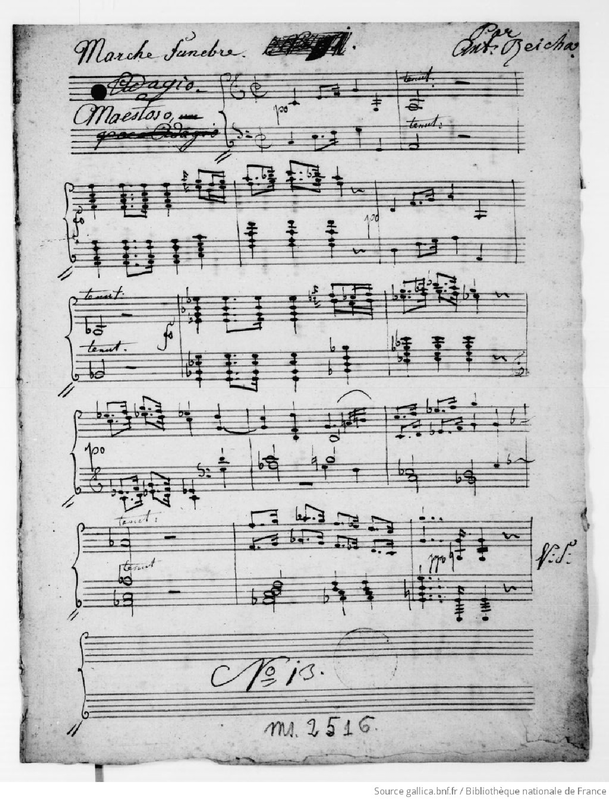 Marche funebre. Par
Ant: Reicha.
Adagio.
Maestoso, un
poco Adagio
tenut:
po
tenut:
fo
po
tenut:
fo
tenut.
po
tenut:
tenut
ppo
V.S.
No 13.
ms. 2516.
Source gallica.bnf.fr / Bibliothèque nationale de France